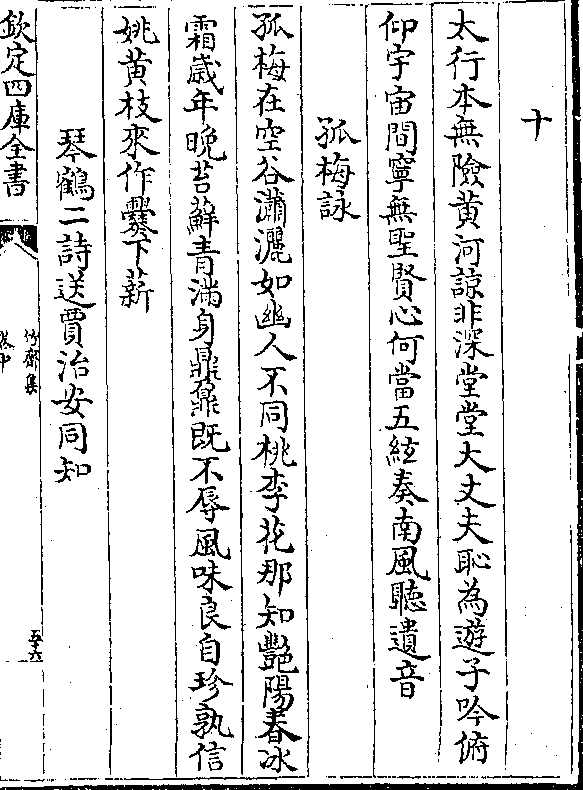 十
太行本無險黄河諒非深堂堂大丈夫恥為遊子吟俯
仰宇宙間寧無聖賢心何當五絃奏南風聽遺音
孤梅詠
孤梅在空谷瀟灑如幽人不同桃李花那知艷陽春冰
霜歲年晚苔蘚青滿身鼎鼐既不辱風味良自珍孰信
姚黄枝來作爨下薪
琴鶴二詩送賈治安同知
欽定四庫全書
竹齋集
卷中
五十六